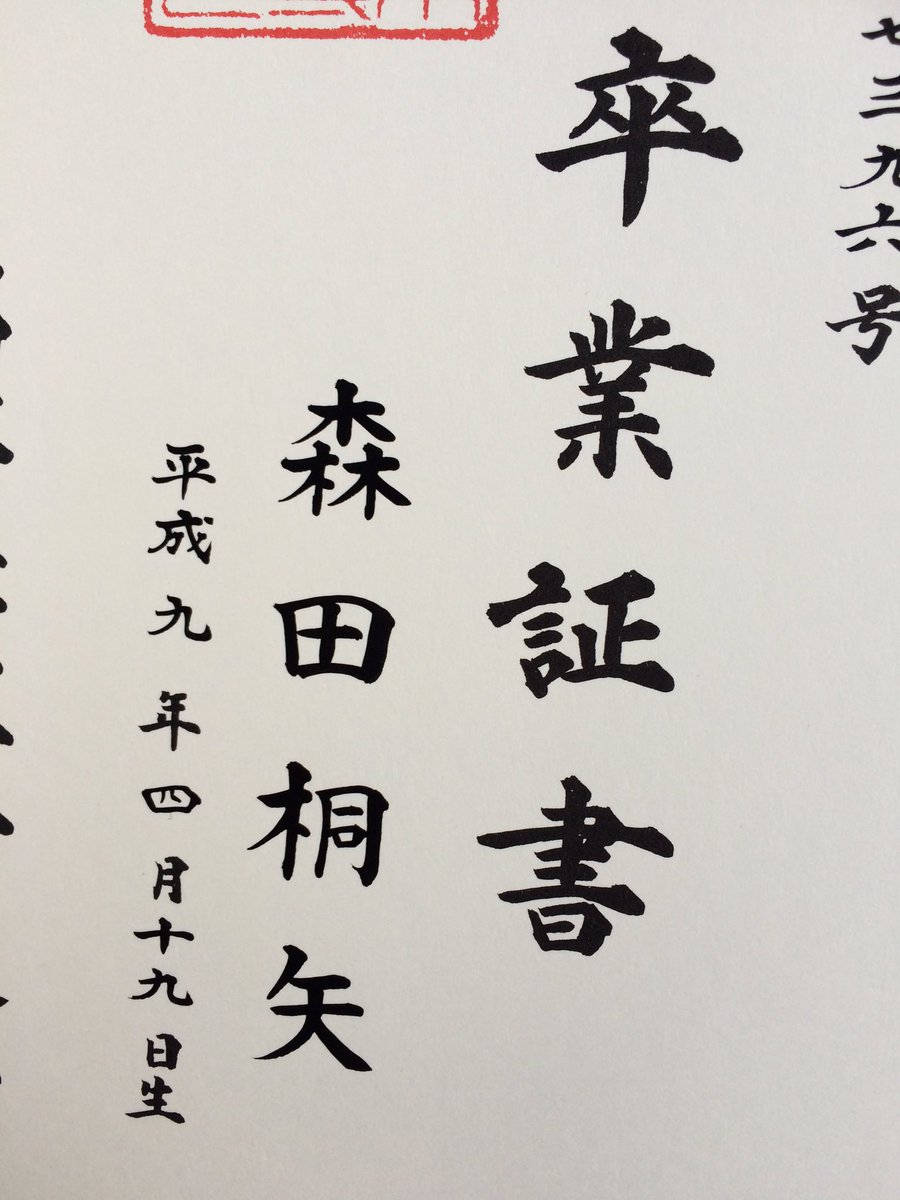 七三九六号
卒業証書
森田桐矢
平成九年四月十九日生